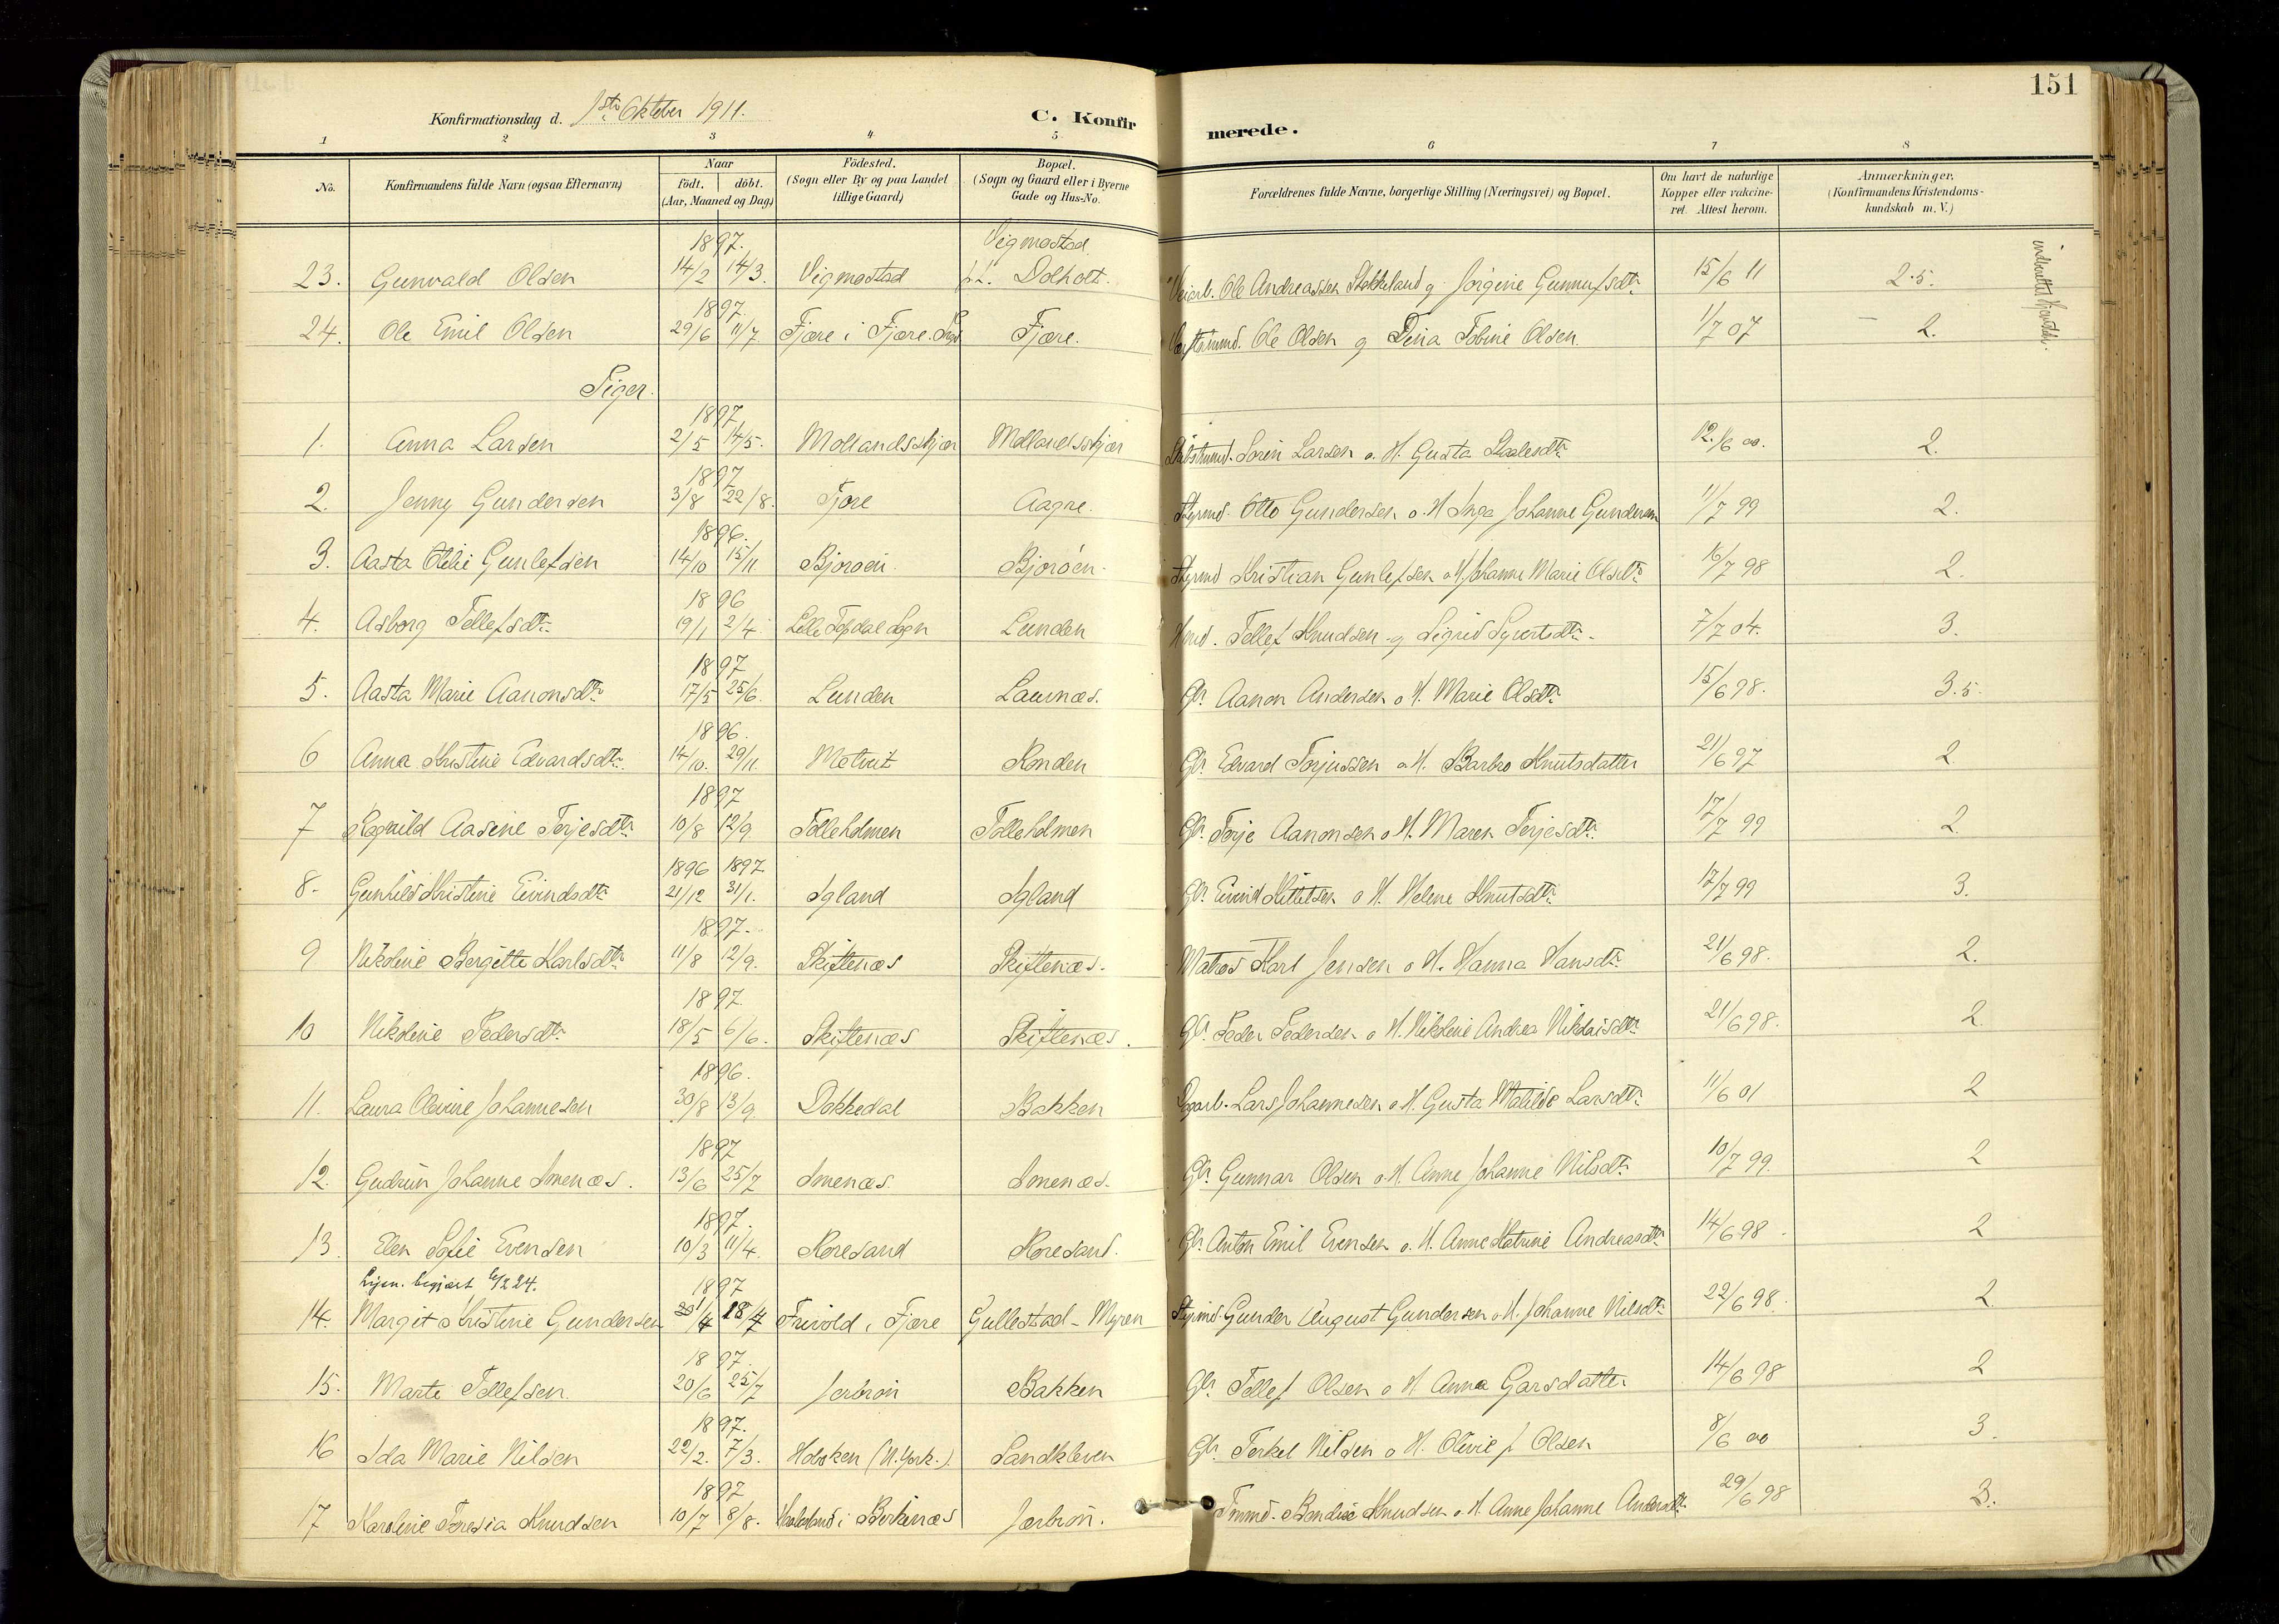 151
Konfirmationsdag d. 1ste Oktober 1911.
C. Konfirmerede.
1 2 3 4 5 6 7 8
No. Konfirmandens fulde Navn (ogsaa Efternavn) Naar födt. döbt. (Aar, Maaned og Dag) Födested. (Sogn eller By og paa Landet tillige Gaard) Bopæl. (Sogn og Gaard eller i Byerne Gade og Hus-No. Forældrenes fulde Navne, borgerlige Stilling (Næringsvei) og Bopæl. Om havt de naturlige Kopper eller vakcineret. Attest herom. Anmærkninger. (Konfirmandens Kristendomskundskab m. V.)
1897. Vigmostad
23. Gunvald Olsen 14/2 14/3. Vigmostad p.t. Dolholt. Veiarb. Ole Andreassen Stokkeland og Jørgine Gunnufsdtr. 15/6 11 2.5.
1897.
24. Ole Emil Olsen 29/6 11/7 Fjære i Fjære. Sogn Fjære. Ole Olsen og Dina Tobine Olsen 1/7 07 2.
Piger.
1897
1. Anna Larsen 2/5 14/5. Mollandsskjær Mollandsskjær Sørin Larsen o. H. Gusta 12/6 00. 2.
1897
2. Jenny Gundersen 3/8 22/8. Fjære Aagre. Styrmd. Otto Gundersen o. H. Inga Johanne Gundersen 11/7 99 2.
1896.
3. Aasta Otelie Gunlefsen 14/10 15/11 Bjorøen Bjorøen. Styrmd Kristian Gunlefsen o H. Johanne Marie Olsdtr 16/7 98 2.
1896
4. Asborg Tellefsdtr. 19/1 2/4. Lille Topdal Sogn Lunden Hmd. Tellef Knudsen og Sigrid Syvertsdtr. 7/7 04. 3.
1897
5. Aasta Marie Aanonsdtr 17/5 25/6. Lunden Launæs. Gbr. Aanon Andersen o H. Marie Olsdtr 15/6 98. 3.5.
1896.
6 Anna Kristine Edvardsdtr. 14/10. 29/11. Molveit Konden Gbr. Edvard Torjussen o H. Barbro Knutsdatter 21/6 97 2
1897
7 Ragnild Aasine Terjesdtr 10/8 12/9 Tolleholmen Tolleholmen Gbr. Terje Aanonsen o H. Maren Terjesdtr. 17/7 99 2.
1896 1897
8. Gunhild Kristine Eivindsdtr 21/12 31/1. Igland Igland Gbr. Eivind Kittelsen o H. Helene Knutsdtr. 17/7 99 3.
1897.
9 Nikoline Bergitte Karlsdtr 11/8 12/9. Skiftenæs Skiftenæs. Matros Karl Jensen o H. Hanna Hansdtr. 21/6 98. 2.
1897
10 Nikoline Pedersdtr 18/5 6/6. Skiftenæs Skiftenæs. Gbr. Peder Pedersen o H. Nikoline Andrea Nikolaisdtr 21/6 98. 2
1896.
11. Laura Olevine Johannesen 30/8 13/9 Dokkedal Bakken Dagarb. Lars Johannesen o H. Gusta Matilde Larsdtr. 11/6 01 2
1897
12. Gudrun Johanne Imenæs. 13/6 25/7 Imenæs. Imenæs. Gbr. Gunnar Olsen o. H. Anne Johanne Nilsdtr. 10/7 99. 2
1897.
13. Elen Sofie Evensen 10/3 11/4. Roresand Roresand. Gbr. Anton Emil Evensen o. H. Anne Katrine Andreasdtr 14/6 98. 2
1897
14. Margit Kristine Gundersen 1/4 18/4 Frivold i Fjære Gullestad - Myren Styrmd. Gunder August Gundersen o H. Johanne Nilsdtr 22/6 98. 2.
1897.
15. Marte Tellefsen. 20/6 25/7 Jorbrøn Bakken Gbr. Tellef Olsen o H Anna Garsdatter 14/6 98 2
1897.
16 Ida Marie Nilsen 22/2. 7/3. Hoboken (N. York.) Sandkleven Gbr. Terkel Nilsen o H. Olevie J Olsen 8/6 00 3.
1897
17 Karoline Teresia Knudsen 10/7 8/8. i Birkenæs Jorbrøn. Tmmd. Bendix Knudsen o H. Anne Johanne 29/6 98 3.